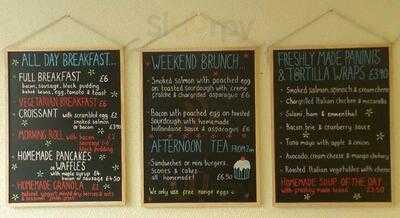 ALL DAY BREAKFAST...
FULL BREAKFAST £6
bacon, sausage, black pudding
baked beans, egg, tomato & toast
VEGETARIAN BREAKFAST £6
CROISSANT with scrambled egg £2
smoked salmon
or bacon £3.90
MORNING ROLL with bacon
sausage
black pudding
HOMEMADE PANCAKES
or WAFFLES
with maple syrup £4
bacon or sausage £4.50
HOMEMADE GRANOLA £1
natural yogurt, mixed dry berries & oats
WEEKEND BRUNCH...
Smoked salmon with poached egg
on toasted sourdough with creme
fraiche & chargrilled asparagus £6
Bacon with poached egg on toasted
sourdough with homemade
hollandaise sauce & asparagus £6
AFTERNOON TEA FROM 2pm
Sandwiches or mini burgers,
Scones & cakes
all homemade! £6.50
We only use free range eggs
FRESHLY MADE PANINIS
& TORTILLA WRAPS £3.90
Smoked salmon, spinach & cream cheese
Chargrilled Italian chicken & mozzarella
Salami, ham & emmenthal
Bacon, brie & cranberry sauce
Tuna mayo with apple & onion
Avocado, cream cheese & mango chutney
Roasted Italian vegetables with cheese
HOMEMADE SOUP OF THE DAY
with freshly baked bread £3.50